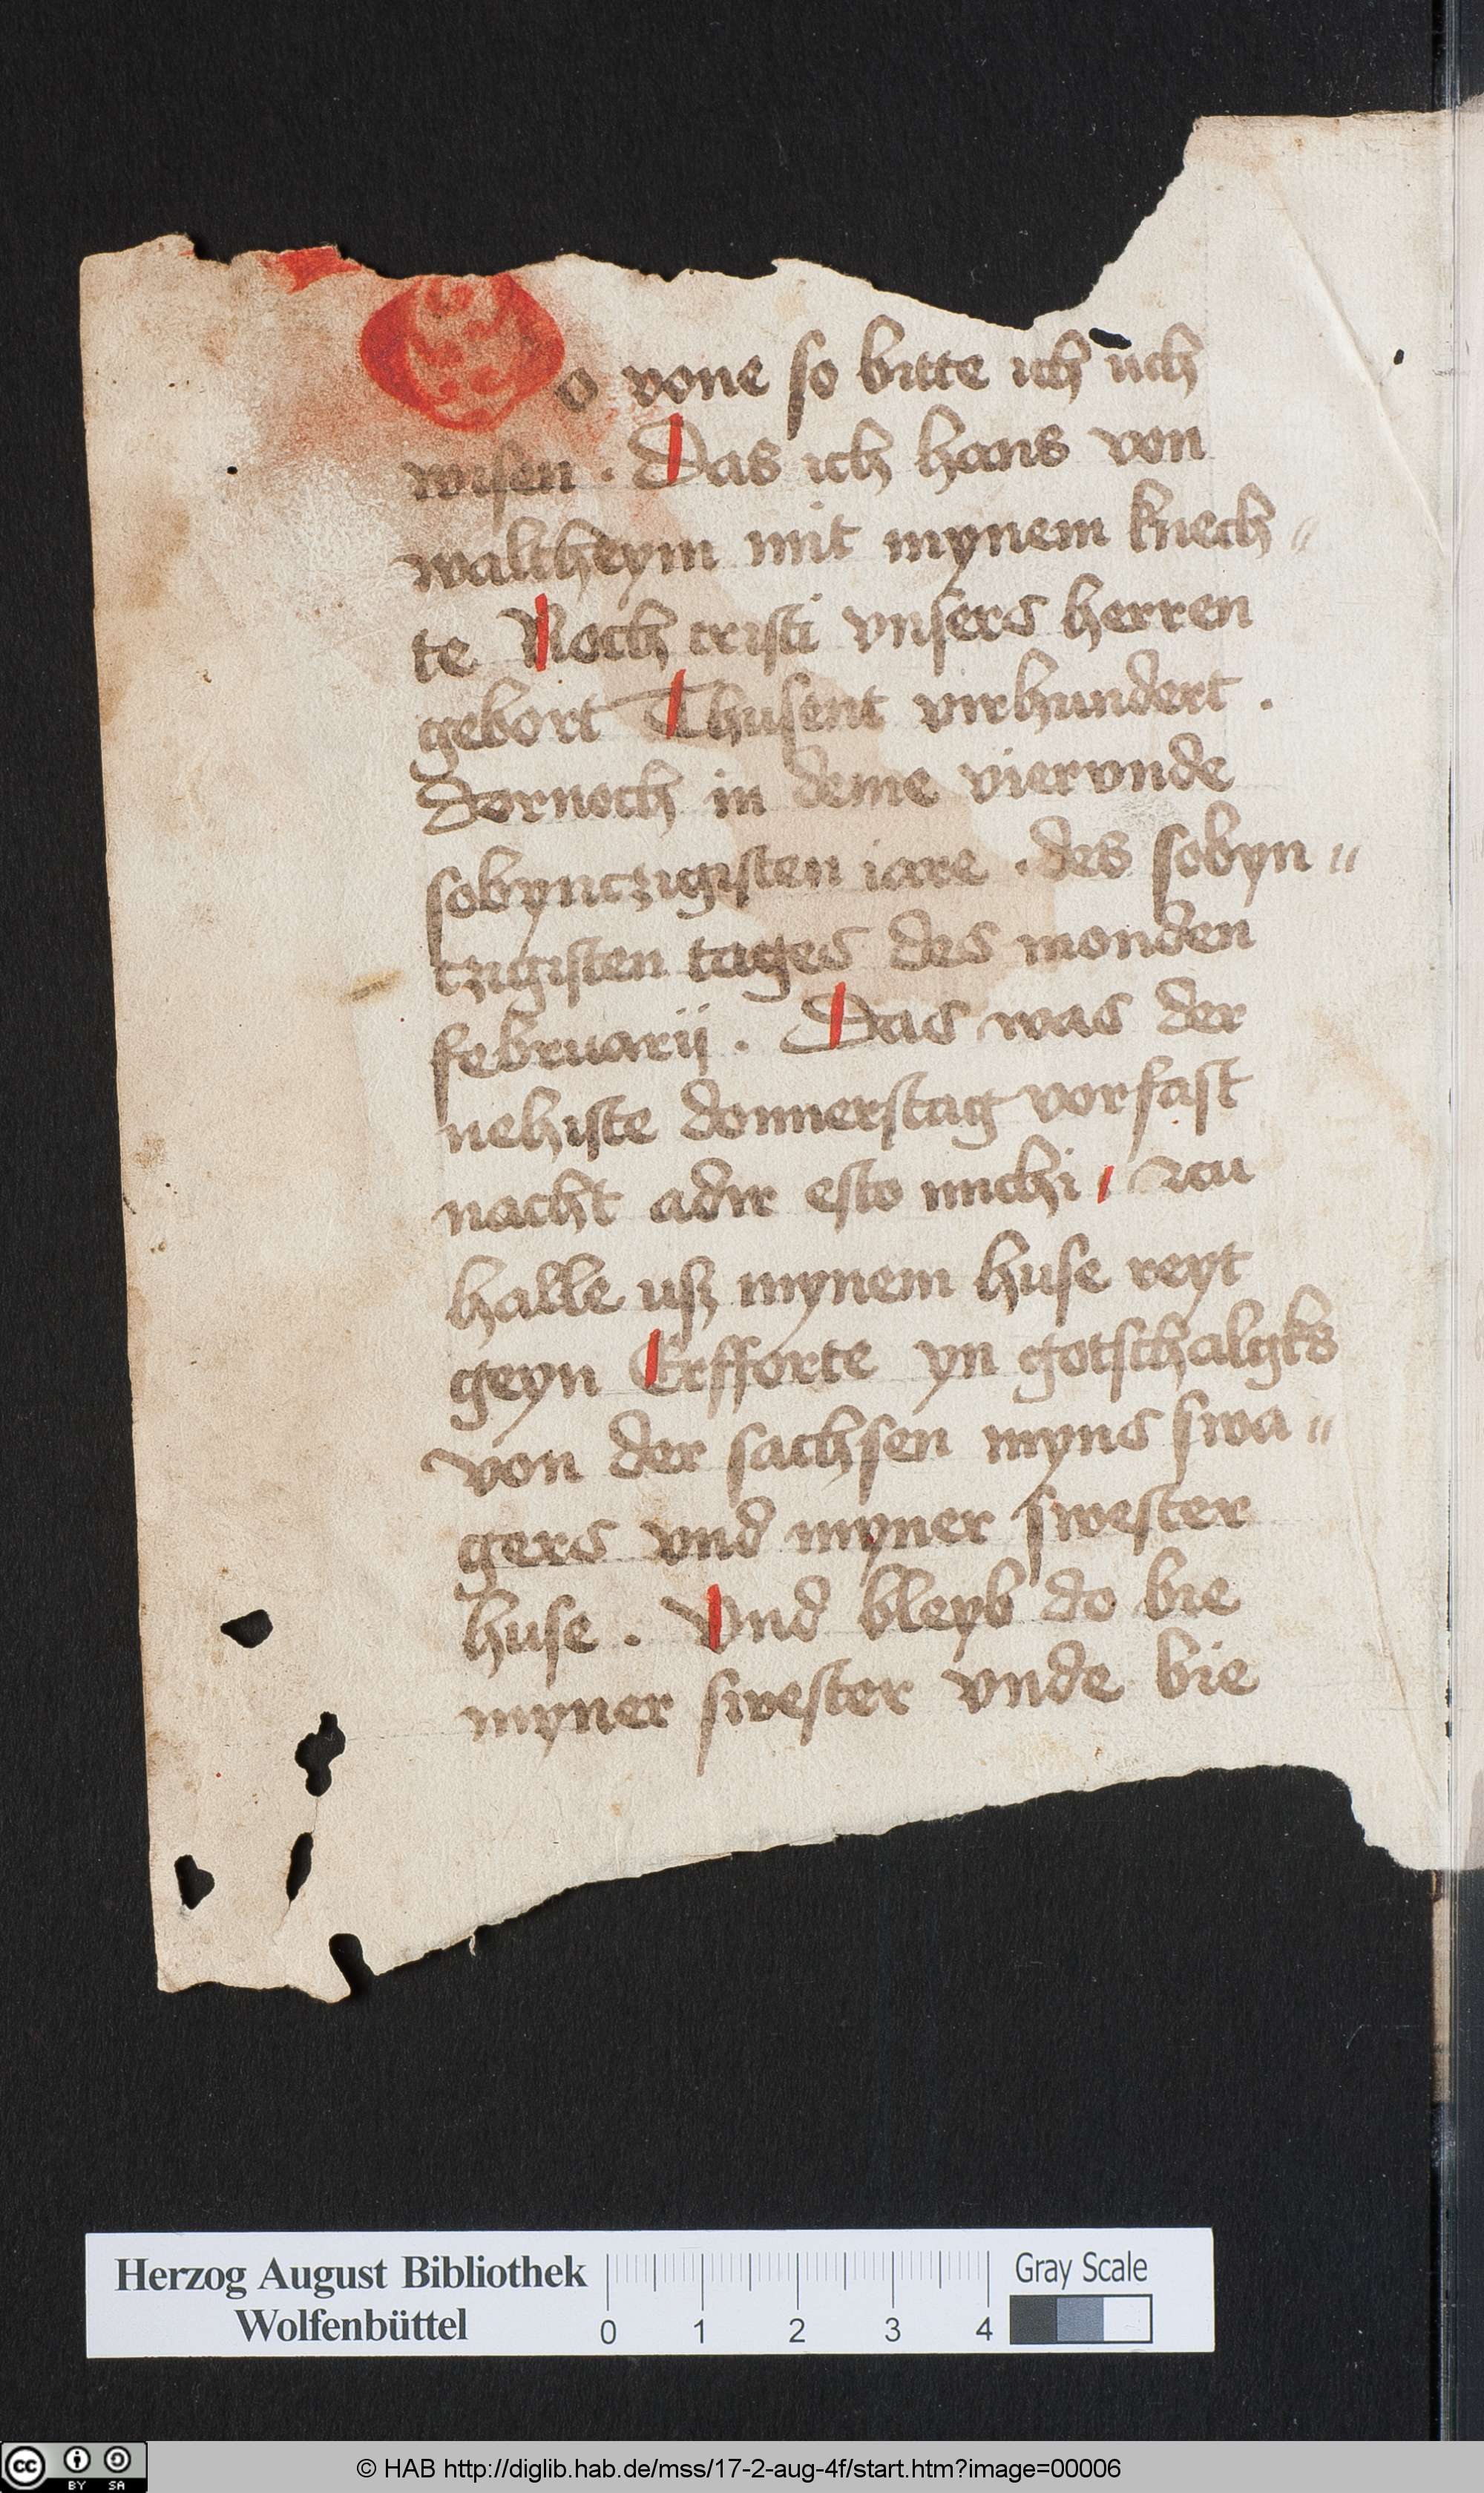 o vone so bitte ich uch
wisen . Das ich hans von
waltheym mit mynem knech〃
te Noch cristi vnsers herren
gebort Thusent virhundert .
dornoch in deme viervnde
sobyntzigisten iare . des sobyn〃
tzigisten tages des monden
februarij . Das was der
nehiste donnerstag vor fast
nacht adir esto michi , zcu
halle uß mynem huse reyt
geyn Erfforte yn gotschalgks
von der sachsen myns swa〃
gers vnd myner swester
huse . Vnd bleyb do bie
myner swester vnde bie
Herzog August Bibliothek
Wolfenbüttel
0 1 2 3 4
Gray Scale
cc BY SA
© HAB http://diglib.hab.de/mss/17-2-aug-4f/start.htm?image=00006